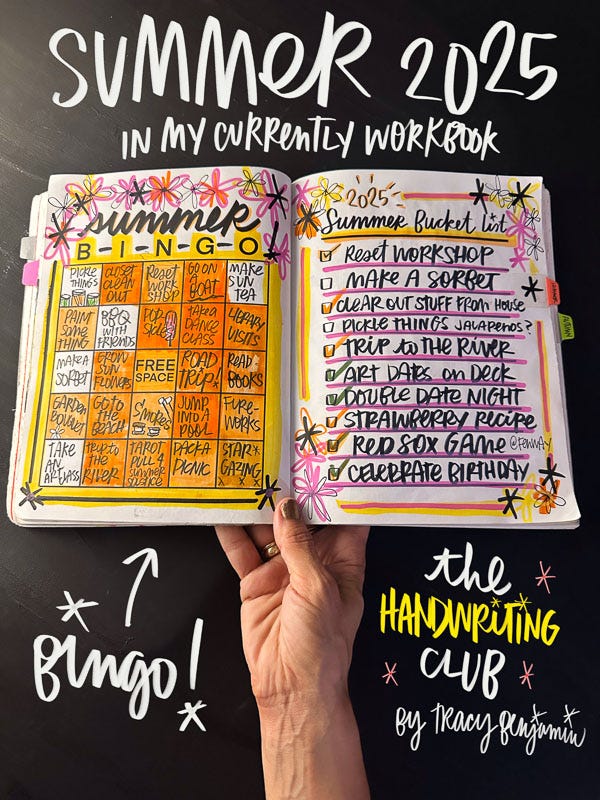 SUMMER 2025
IN MY CURRENTLY WORKBOOK
summer
B-I-N-G-O!
PICKLE THINGS
CLOSET CLEAN OUT
RESET WORK SHOP
GO ON A BOAT
MAKE SUN TEA
PAINT SOME THING
BBQ WITH FRIENDS
POP SICLE
TAKE A DANCE CLASS
LIBRARY VISITS
MAKE A SORBET
GROW SUN FLOWERS
FREE SPACE
ROAD TRIP!
READ BOOKS
GARDEN BOUQUET
GO TO THE BEACH
S'mores
JUMP INTO A POOL
FIRE-WORKS
TAKE AN ART CLASS
TRIP TO THE RIVER
TAROT PULL 4 SUMMER SOLSTICE
PACK A PICNIC
STAR GAZING
2025
Summer Bucket List
RESET WORKSHOP
MAKE A SORBET
CLEAR OUT STUFF FROM HOUSE
PICKLE THINGS JALAPENOS?
TRIP TO THE RIVER
ART DATES ON DECK
DOUBLE DATE NIGHT
STRAWBERRY RECIPE
RED SOX GAME @FENWAY
CELEBRATE BIRTHDAY
Bingo!
the
HANDWRITING
CLUB
BY TRACY BENJAMIN